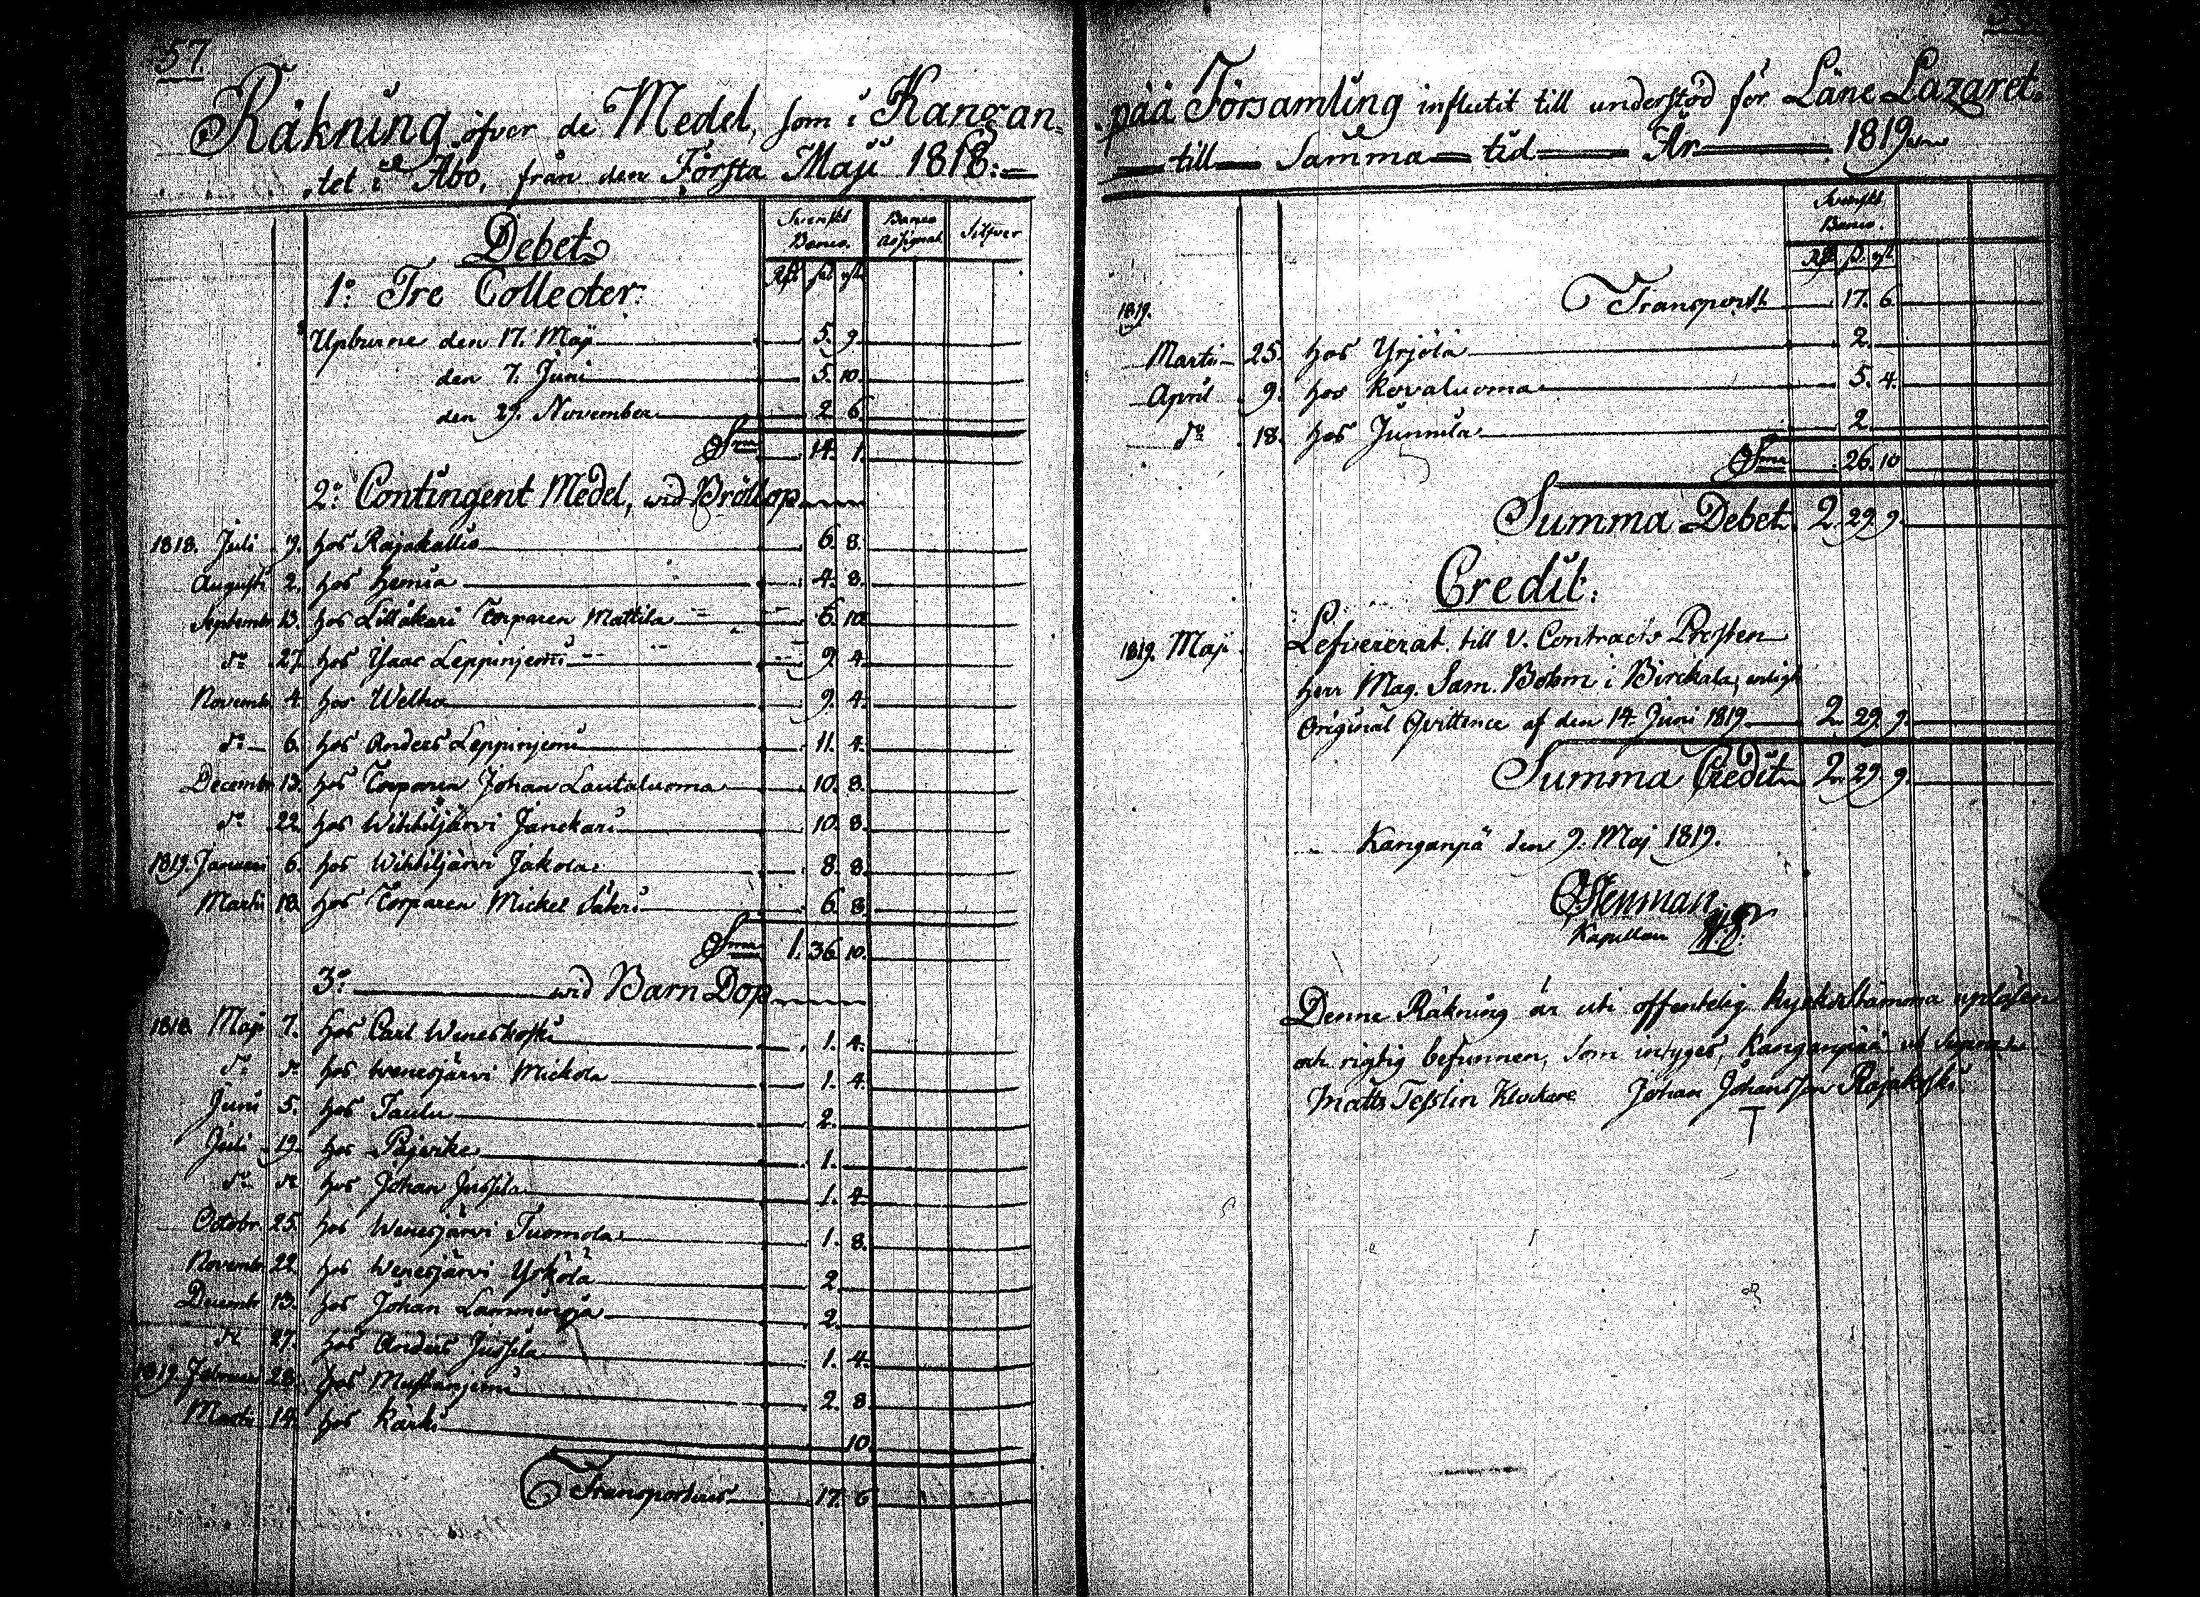 57
Räkning öfver de Medel, som i Kangan=
tet i Åbo, från den Första Maji 1818:
Debet
Svenskt Banco. Banco Assignat. Silfver
1:o Tre Collecter:
Rdr sk rst
Upburne den 17. Maji 5. 9.
den 7. Juni 5. 10.
den 29. November 2. 6.
Sma 14. 1.
2:o Contingent Medel, wid Bröllop
1818. Juli 9. hos Rajakallio 6. 8.
Augusti 2. hos Hemia 4. 8.
Septembr 13. hos Lillåkari Torparen Mattila 6. 10.
do 27. hos Ysaac Leppinjemi 9. 4.
Novembr 4. hos Welha 9. 4.
do 6. hos Anders Leppinjemi 11. 4.
Decembr 13. hos Torparen Johan Lautaluoma 10. 8.
do 22. hos Wihteljärvi Janckari 10. 8.
1819. Januari 6. hos Wihteljärvi Jakola 8. 8.
Martii 18. hos Torparen Mickel Säkri 6. 8.
Sma 1. 36. 10.
3:o wid Barn Dop
1818. Maji 7. hos Carl Weneskoski 1. 4.
do do hos Wenesjärvi Mickola 1. 4.
Juni 5. hos Taulu 2.
Juli 19. hos Pajerike 1.
do do hos Johan Jussila 1. 4.
Octobr. 25. hos Wenesjärvi Tuomola 1. 8.
Novembr 22. hos Wenesjärvi Yrköla 2.
Decembr 13. hos Johan Lamminoja 2.
do 27. hos Anders Jussila 1. 4.
1819. Februari 28. hos Mustanjemi 2. 8.
Martii 14. hos Kärki 10.
Transporteras 17. 6
pää Församling influtit till understöd för Läns Lazaret=
till Samma tid År 1819
Svenskt Banco.
Rdr sk rst
Transport 17. 6
1819.
Martii 25. hos Yrjölä 2.
April 9. hos Kovaluoma 5. 4.
do 18. hos Junnila 2
Sma 26. 10
Summa Debet. 2. 29. 9.
Credit:
1819. Maji Lefvererat till V. Contracts Prosten
Herr Mag. Sam. Bohm i Birckala, enligt
Original Qvittence af den 14. Juni 1819 2. 29. 9.
Summa Credit 2. 29. 9.
Kanganpä den 9. Maj 1819.
Stenman
Kapellan
Denne Räkning är uti offentelig Kyrkostämma uplåsen
och rigtig befunnen, som intyges, Kanganpää ut supra
Matts Tesslin Klockare Johan Johansson Rajakoski